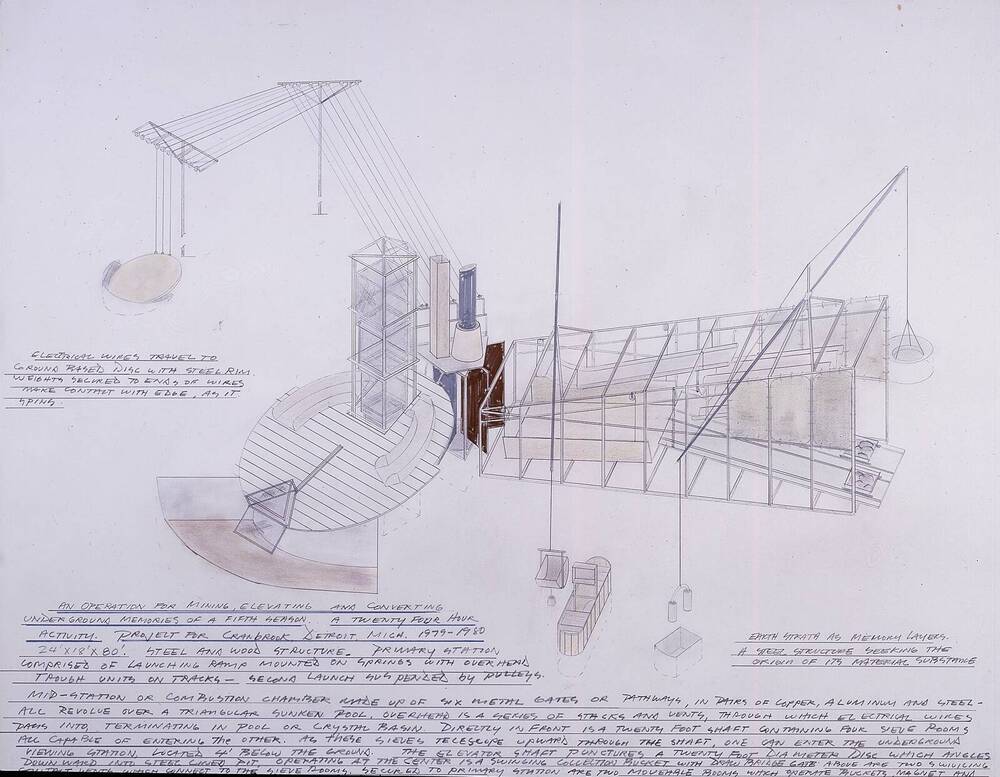 ELECTRICAL WIRES TRAVEL TO
GROUND BASED DISC WITH STEEL RIM.
WEIGHTS SECURED TO ENDS OF WIRES
MAKE CONTACT WITH EDGE, AS IT
SPINS.
AN OPERATION FOR MINING, ELEVATING AND CONVERTING
UNDERGROUND MEMORIES OF A FIFTH SEASON. A TWENTY FOUR HOUR
ACTIVITY. PROJECT FOR CRANBROOK, DETROIT, MICH. 1979-1980
24'X18'X80'. STEEL AND WOOD STRUCTURE. PRIMARY STATION
COMPRISED OF LAUNCHING RAMP MOUNTED ON SPRINGS WITH OVERHEAD
TROUGH UNITS ON TRACKS - SECOND LAUNCH SUSPENDED BY PULLEYS.
EARTH STRATA AS MEMORY LAYERS.
A STEEL STRUCTURE SEEKING THE
ORIGIN OF ITS MATERIAL SUBSTANCE
MID-STATION OR COMBUSTION CHAMBER MADE UP OF SIX METAL GATES OR PATHWAYS, IN PAIRS OF COPPER, ALUMINUM AND STEEL-
ALL REVOLVE OVER A TRIANGULAR SUNKEN POOL. OVERHEAD IS A SERIES OF STACKS AND VENTS, THROUGH WHICH ELECTRICAL WIRES
PASS INTO, TERMINATING IN POOL OR CRYSTAL BASIN. DIRECTLY IN FRONT IS A TWENTY FOOT SHAFT CONTAINING FOUR SIEVE ROOMS
ALL CAPABLE OF ENTERING THE OTHER. AS THESE SIEVES TELESCOPE UPWARD THROUGH THE SHAFT, ONE CAN ENTER THE UNDERGROUND
VIEWING STATION, LOCATED BELOW THE GROUND. THE ELEVATOR SHAFT PUNCTURES A TWENTY FOOT DIAMETER DISC WHICH ANGLES
DOWNWARD INTO STEEL LINED PIT. OPERATING AT THE CENTER IS A SWINGING COLLECTION BUCKET WITH DRAWBRIDGE GATE. ABOVE ARE TWO SWIVELING
VENTS WHICH CONNECT TO THE SIEVE ROOMS. SECURED TO PRIMARY STATION ARE TWO MOVEABLE BOOMS WHICH OPERATE BUCKETS, MAGNET AND